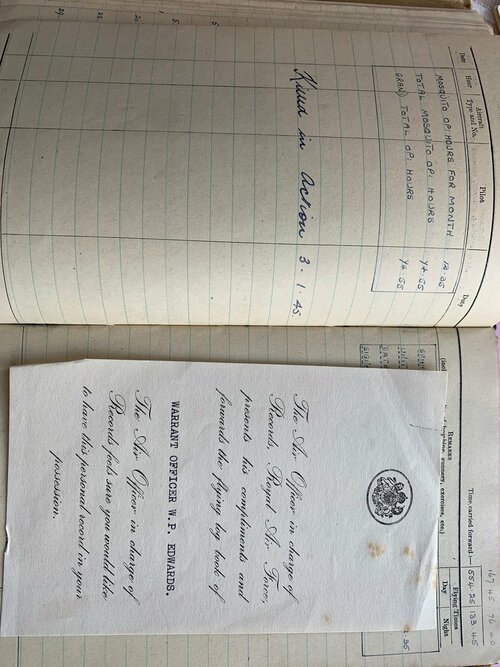 Date
Hour
Aircraft
Type and No.
Pilot
Day
MOSQUITO OP: HOURS FOR MONTH 18.35
TOTAL MOSQUITO OP: HOURS 74.55
GRAND TOTAL OP: HOURS 74.55
Killed in Action 3.1.45
167.45 76.40
Time carried forward :— 554.25 133.45
REMARKS
Flying Times
exercises, etc.)
Day
Night
The Air Officer in charge of
Records, Royal Air Force,
presents his compliments and
forwards the flying log book of
WARRANT OFFICER W.P. EDWARDS.
The Air Officer in charge of
Records feels sure you would like
to have this personal record in your
possession.